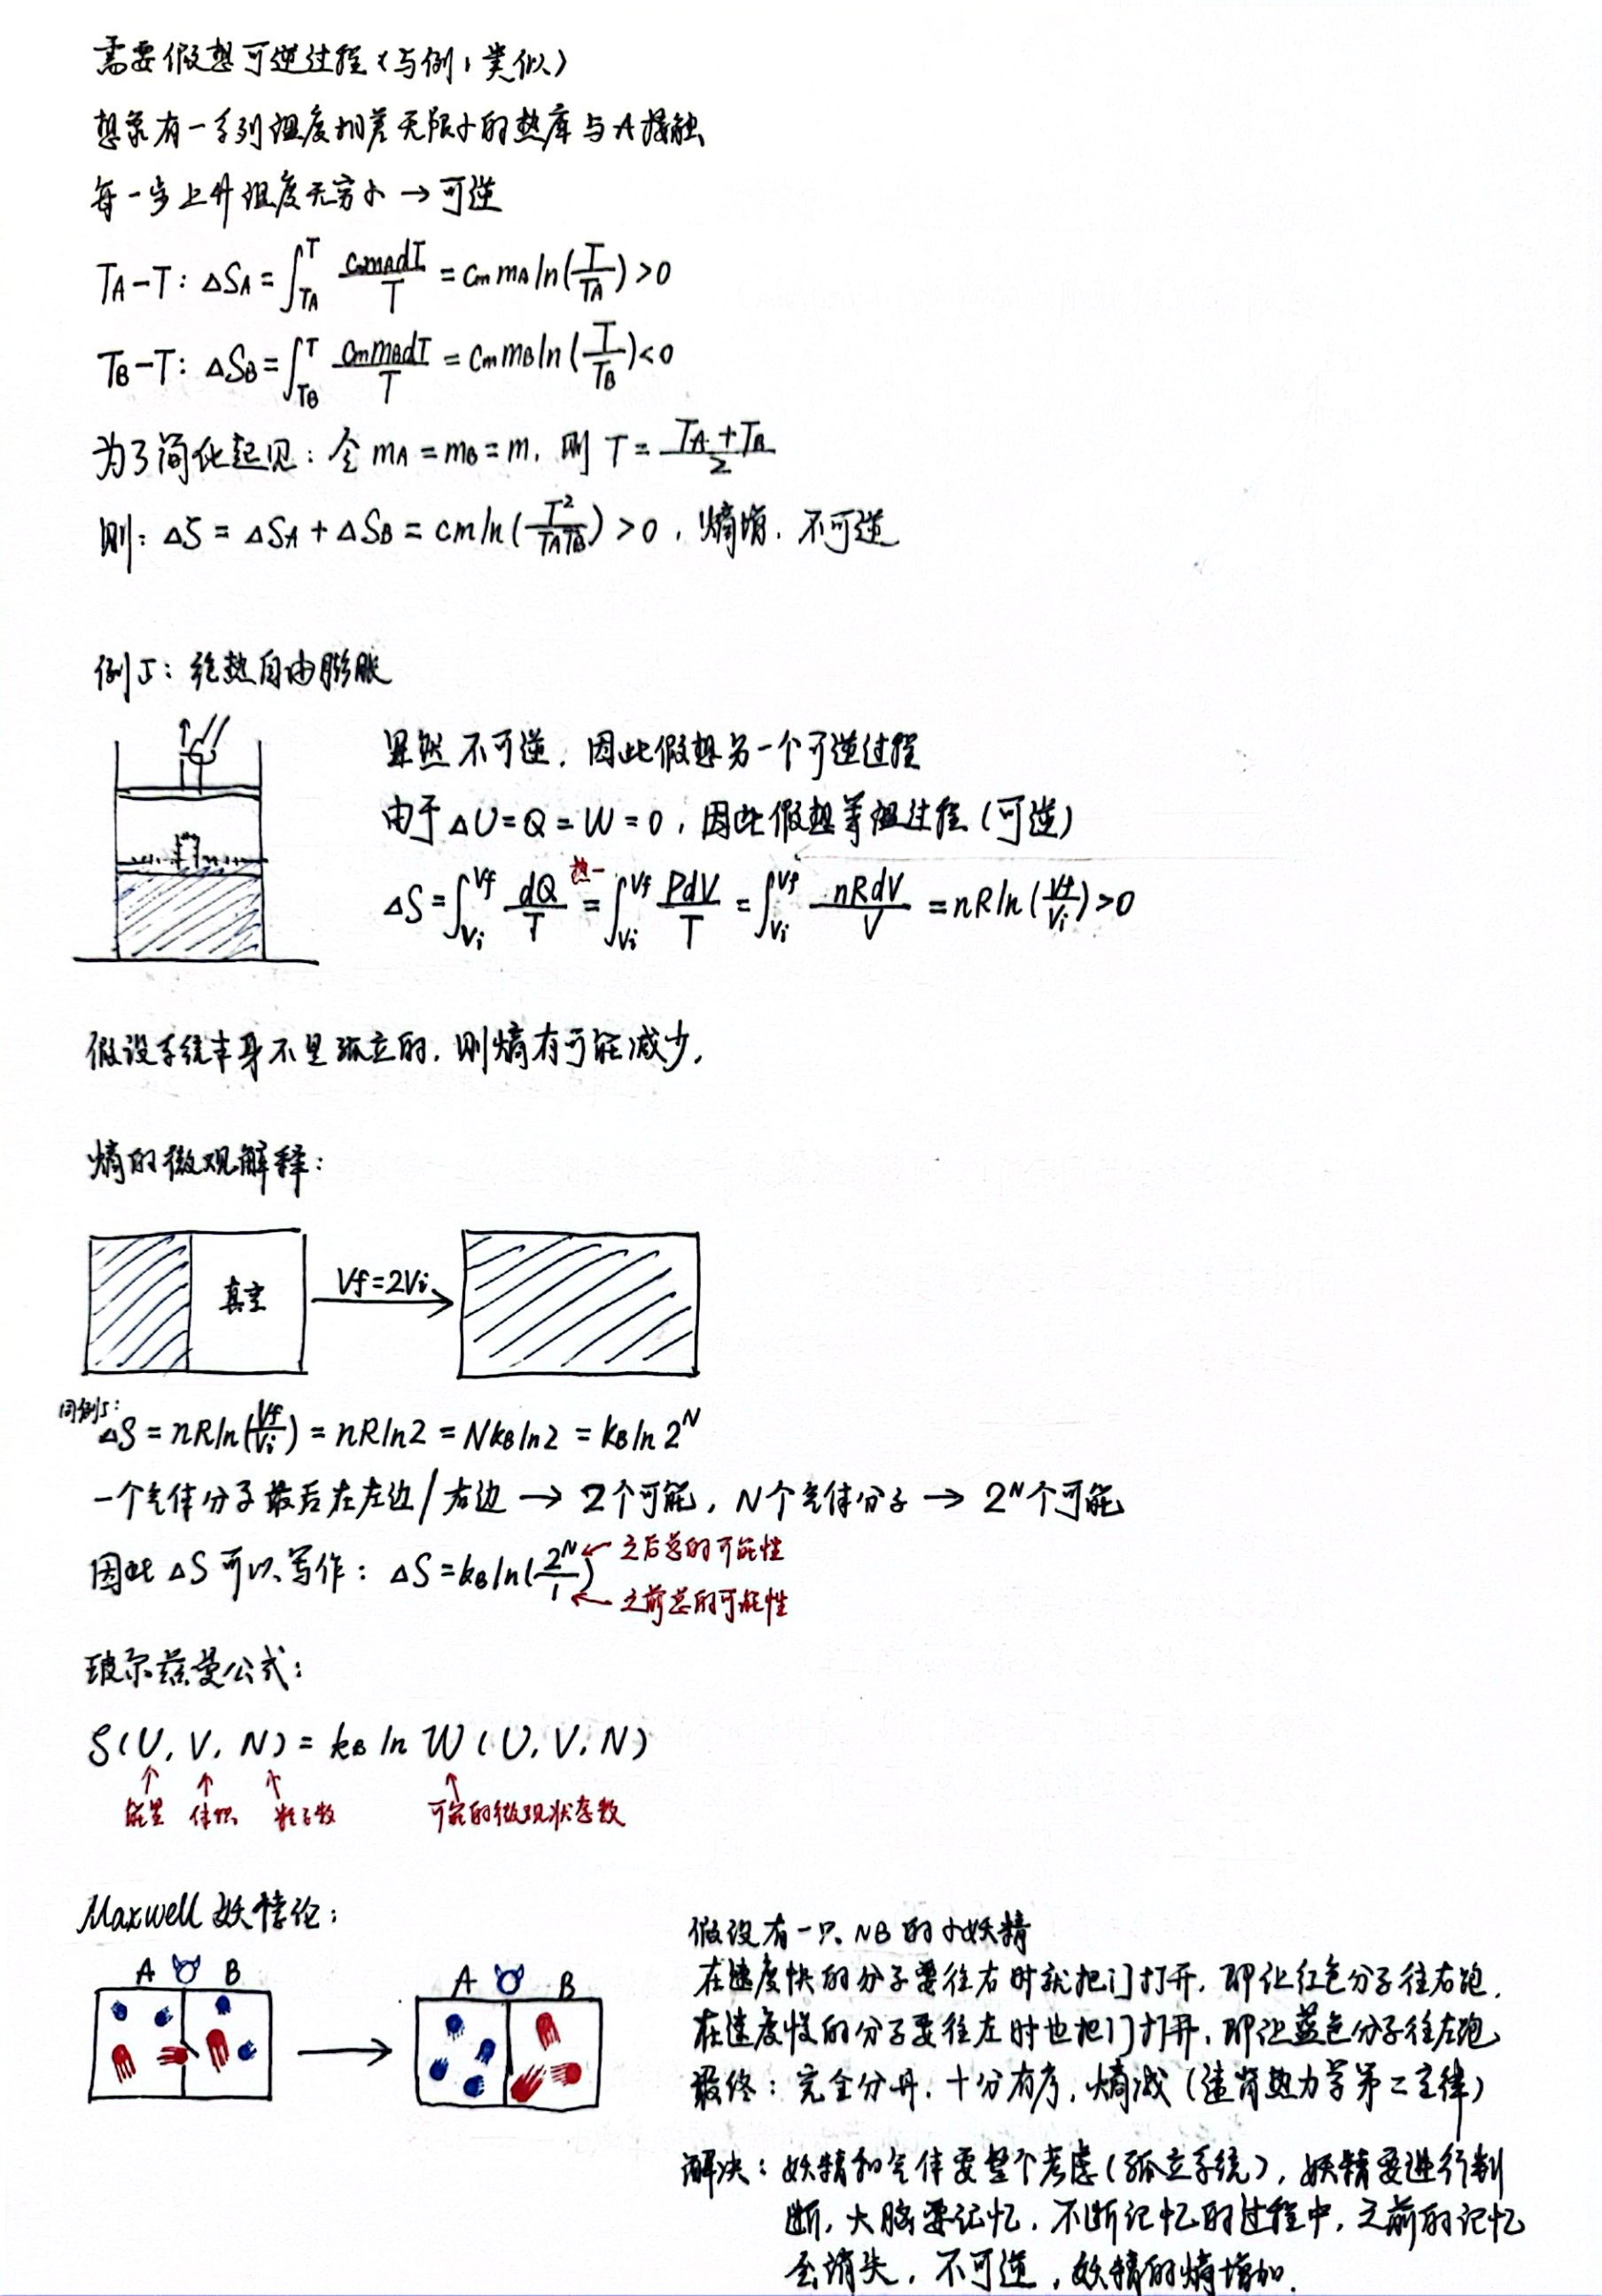 需要假想可逆过程(与例1类似)
想象有一系列温度相差无限小的热库与A接触
每一步上升温度无穷小 → 可逆
TA-T: ΔSA = ∫_{TA}^{T} cm mA dT / T = cm mA ln(T/TA) > 0
TB-T: ΔSB = ∫_{TB}^{T} cm mB dT / T = cm mB ln(T/TB) < 0
为了简化起见: 令 mA = mB = m, 则 T = (TA + TB)/2
则: ΔS = ΔSA + ΔSB = cm ln(T²/TATB) > 0, 熵增, 不可逆
例5: 绝热自由膨胀
显然不可逆, 因此假想另一个可逆过程
由于 ΔU = Q = W = 0, 因此假想等温过程 (可逆)
热一
ΔS = ∫_{Vi}^{Vf} dQ/T = ∫_{Vi}^{Vf} PdV/T = ∫_{Vi}^{Vf} nRdV/V = nR ln(Vf/Vi) > 0
假设系统本身不是孤立的, 则熵有可能减少.
熵的微观解释:
真空
Vf=2Vi
同例5:
ΔS = nR ln(Vf/Vi) = nR ln2 = NkB ln2 = kB ln 2^N
一个气体分子最后在左边/右边 → 2个可能, N个气体分子 → 2^N个可能
因此 ΔS 可以写作: ΔS = kB ln(2^N/1)
← 之后总的可能性
← 之前总的可能性
玻尔兹曼公式:
S(U, V, N) = kB ln W (U, V, N)
能量 体积 粒子数 可能的微观状态数
Maxwell 妖悖论:
A B
A B
假设有一只 NB 的小妖精
在速度快的分子要往右时就把门打开, 即让红色分子往右跑,
在速度慢的分子要往左时也把门打开, 即让蓝色分子往左跑
最终: 完全分开, 十分有序, 熵减 (违背热力学第二定律)
解决: 妖精和气体要整个考虑(孤立系统), 妖精要进行判
断, 大脑要记忆, 不断记忆的过程中, 之前的记忆
会消失, 不可逆, 妖精的熵增加.